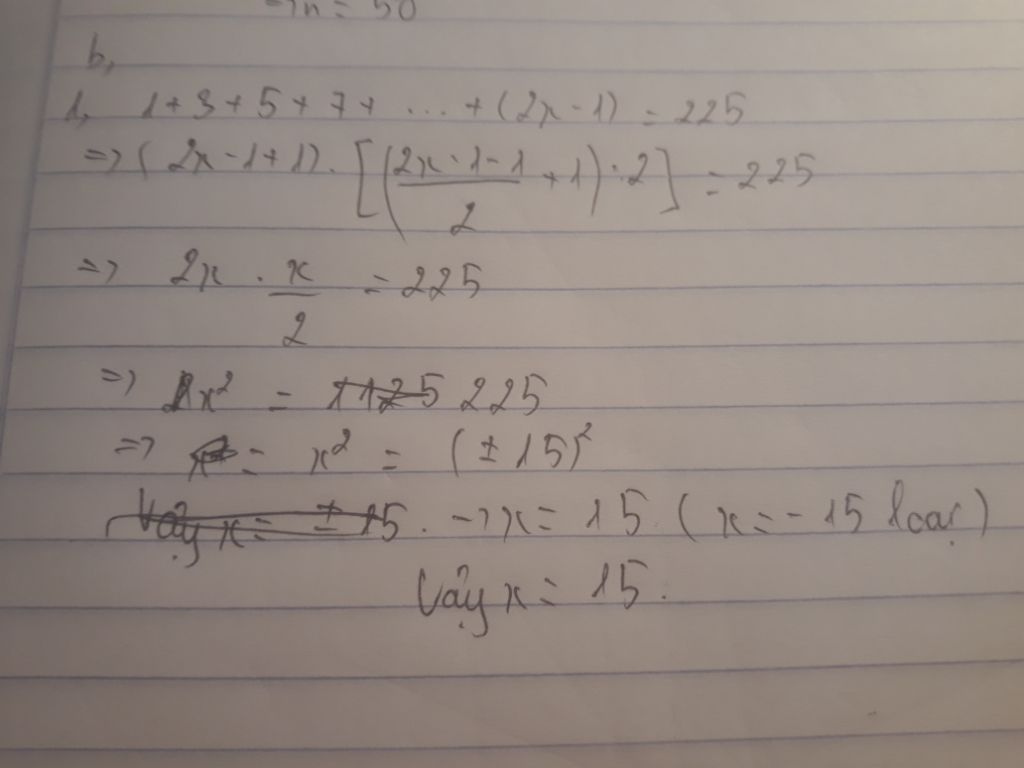 →n = 50
b,
1, 1+3+5+7+ ... +(2x-1) = 225
=> (2x-1+1). [((2x-1-1)/2 +1):2] = 225
=> 2x . x/2 = 225
=> x² = 1125 225
=> = x² = (±15)²
Vậy x = ±15. →x = 15 (x=-15 loại)
Vậy x = 15.